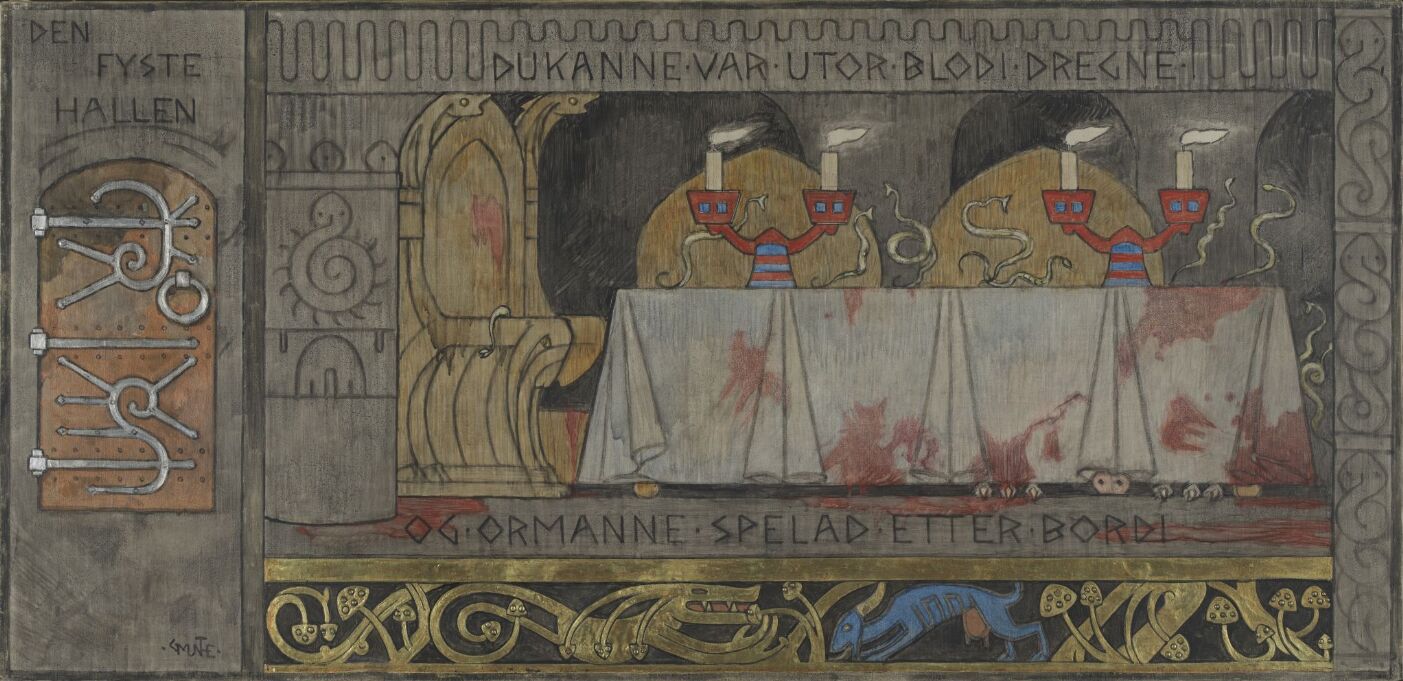 DEN
FYSTE
HALLEN
DUKANNE·VAR·UTOR·BLODI·DREGNE·
OG·ORMANNE·SPELAD·ETTER·BORDI
·GMUNTE·